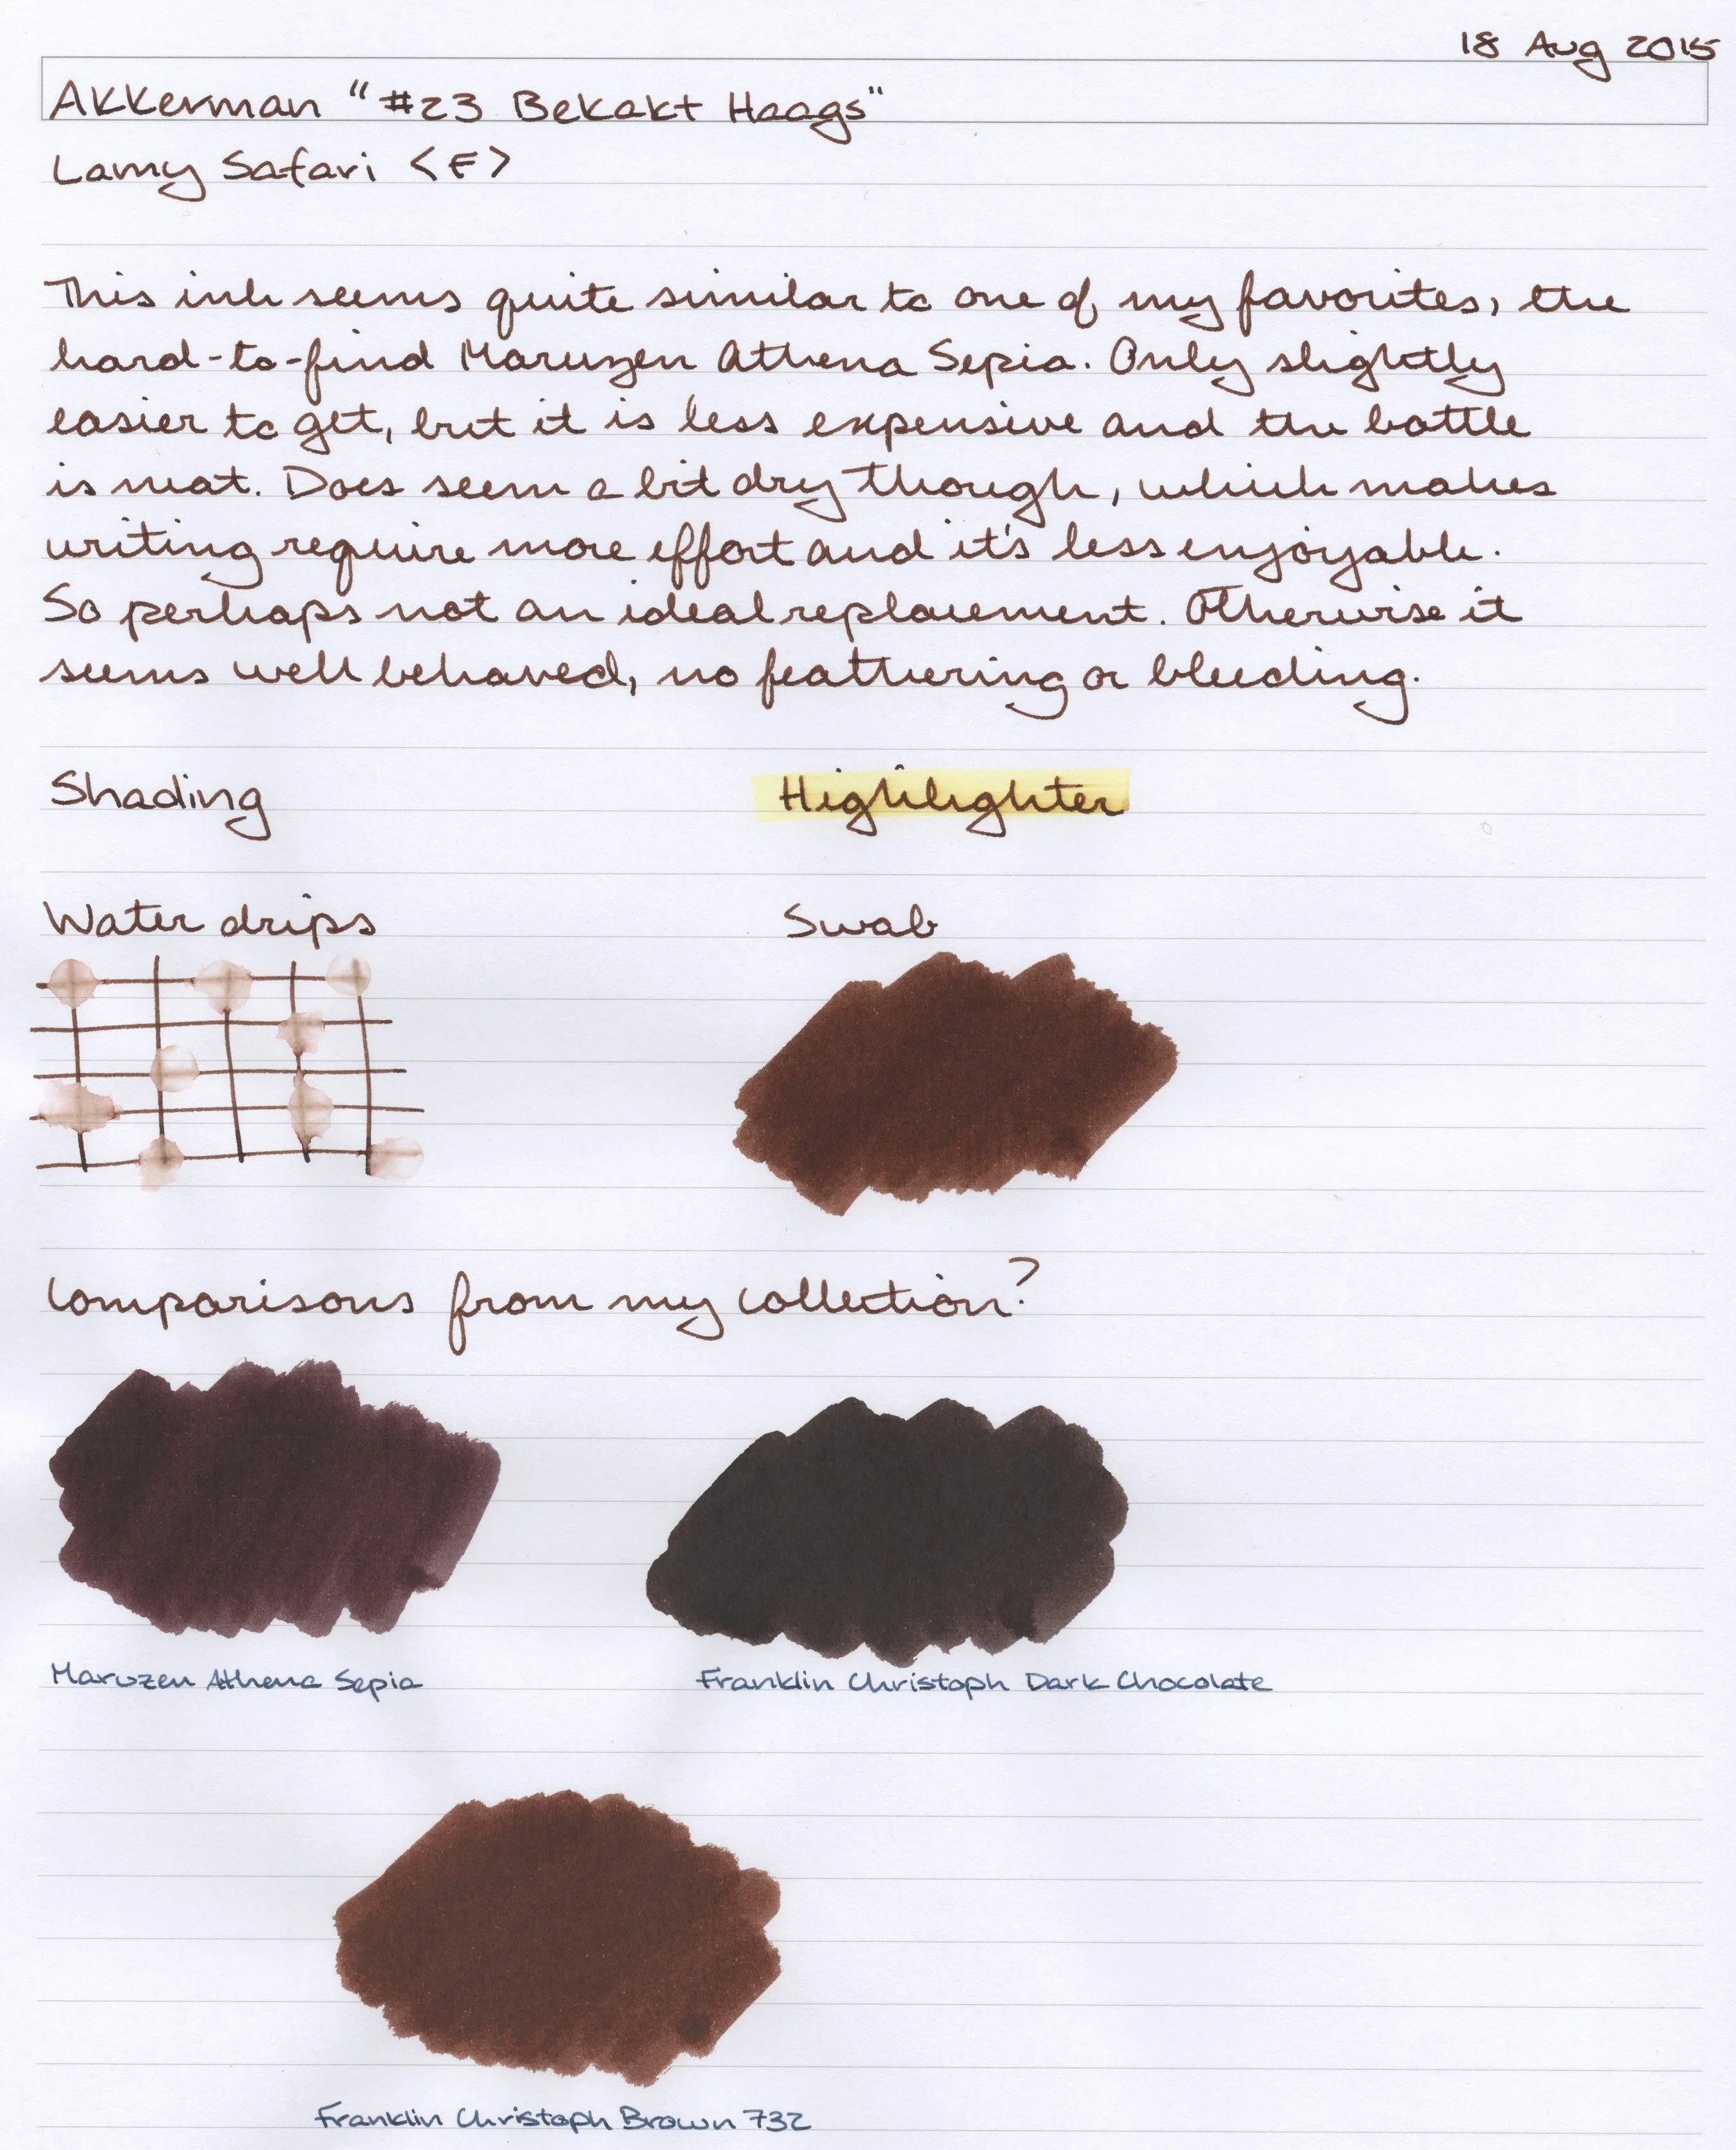 18 Aug 2015
Akkerman "#23 Bekakt Haags"
Lamy Safari <F>
This ink seems quite similar to one of my favorites, the
hard-to-find Maruzen Athena Sepia. Only slightly
easier to get, but it is less expensive and the bottle
is neat. Does seem a bit dry though, which makes
writing require more effort and it's less enjoyable.
So perhaps not an ideal replacement. Otherwise it
seems well behaved, no feathering or bleeding.
Shading
Highlighter
Water drips
Swab
Comparisons from my collection?
Maruzen Athena Sepia
Franklin Christoph Dark Chocolate
Franklin Christoph Brown 732